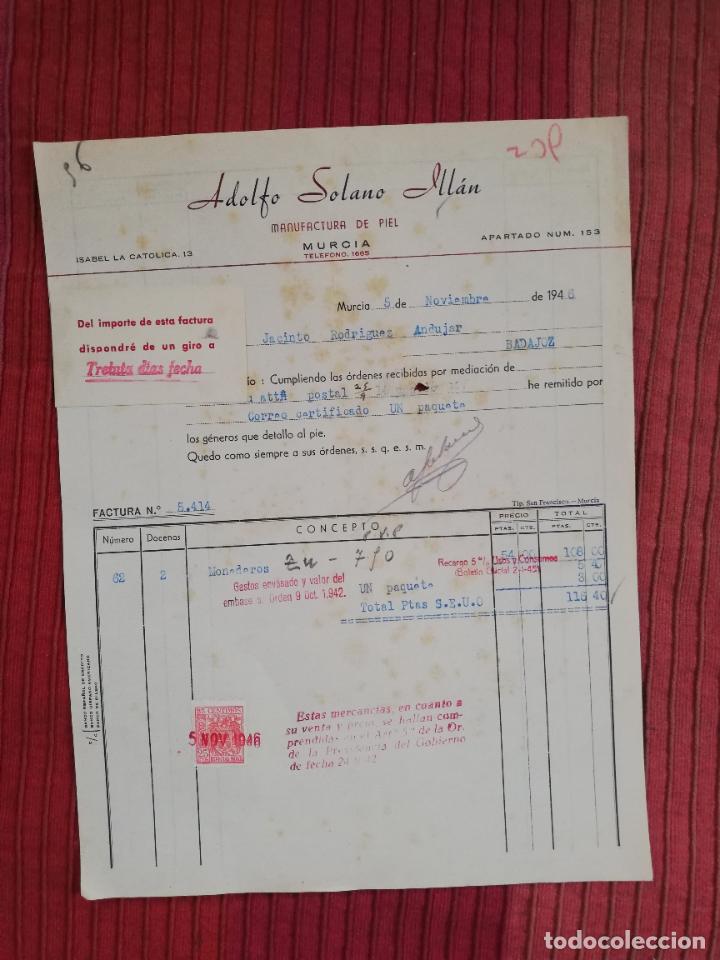 96
Adolfo Solano Illán
MANUFACTURA DE PIEL
MURCIA
TELEFONO. 1665
ISABEL LA CATOLICA, 13
APARTADO NUM. 153
Murcia 5 de Noviembre de 1946
Del importe de esta factura
dispondré de un giro a
Treinta dias fecha
Jacinto Rodriguez Andujar
BADAJOZ
io : Cumpliendo las órdenes recibidas por mediación de
attª postal
he remitido por
Correo certificado UN paquete
los géneros que detallo al pie.
Quedo como siempre a sus órdenes, s. s. q. e. s. m.
Tip. San Francisco.—Murcia
FACTURA N.º 5.414
Número Docenas CONCEPTO PRECIO TOTAL
PTAS. CTS. PTAS. CTS.
62 2 Monederos 54 00 108 00
Recargo 5 % Usos y Consumos 5 40
(Boletin Oficial 2-1-45)
Gastos envasado y valor del
embase s. Orden 9 Oct. 1.942.
UN paquete 3 00
Total Ptas S.E.U.O 116 40
BANCO ESPAÑOL DE CREDITO
BANCO HISPANO AMERICANO
BANCO DE BILBAO
5 NOV 1946
Estas mercancias, en cuanto a
su venta y precio, se hallan com-
prendidas en el Artº 5º de la Or.
de la Presidencia del Gobierno
de fecha
todocoleccion
todocoleccion.net